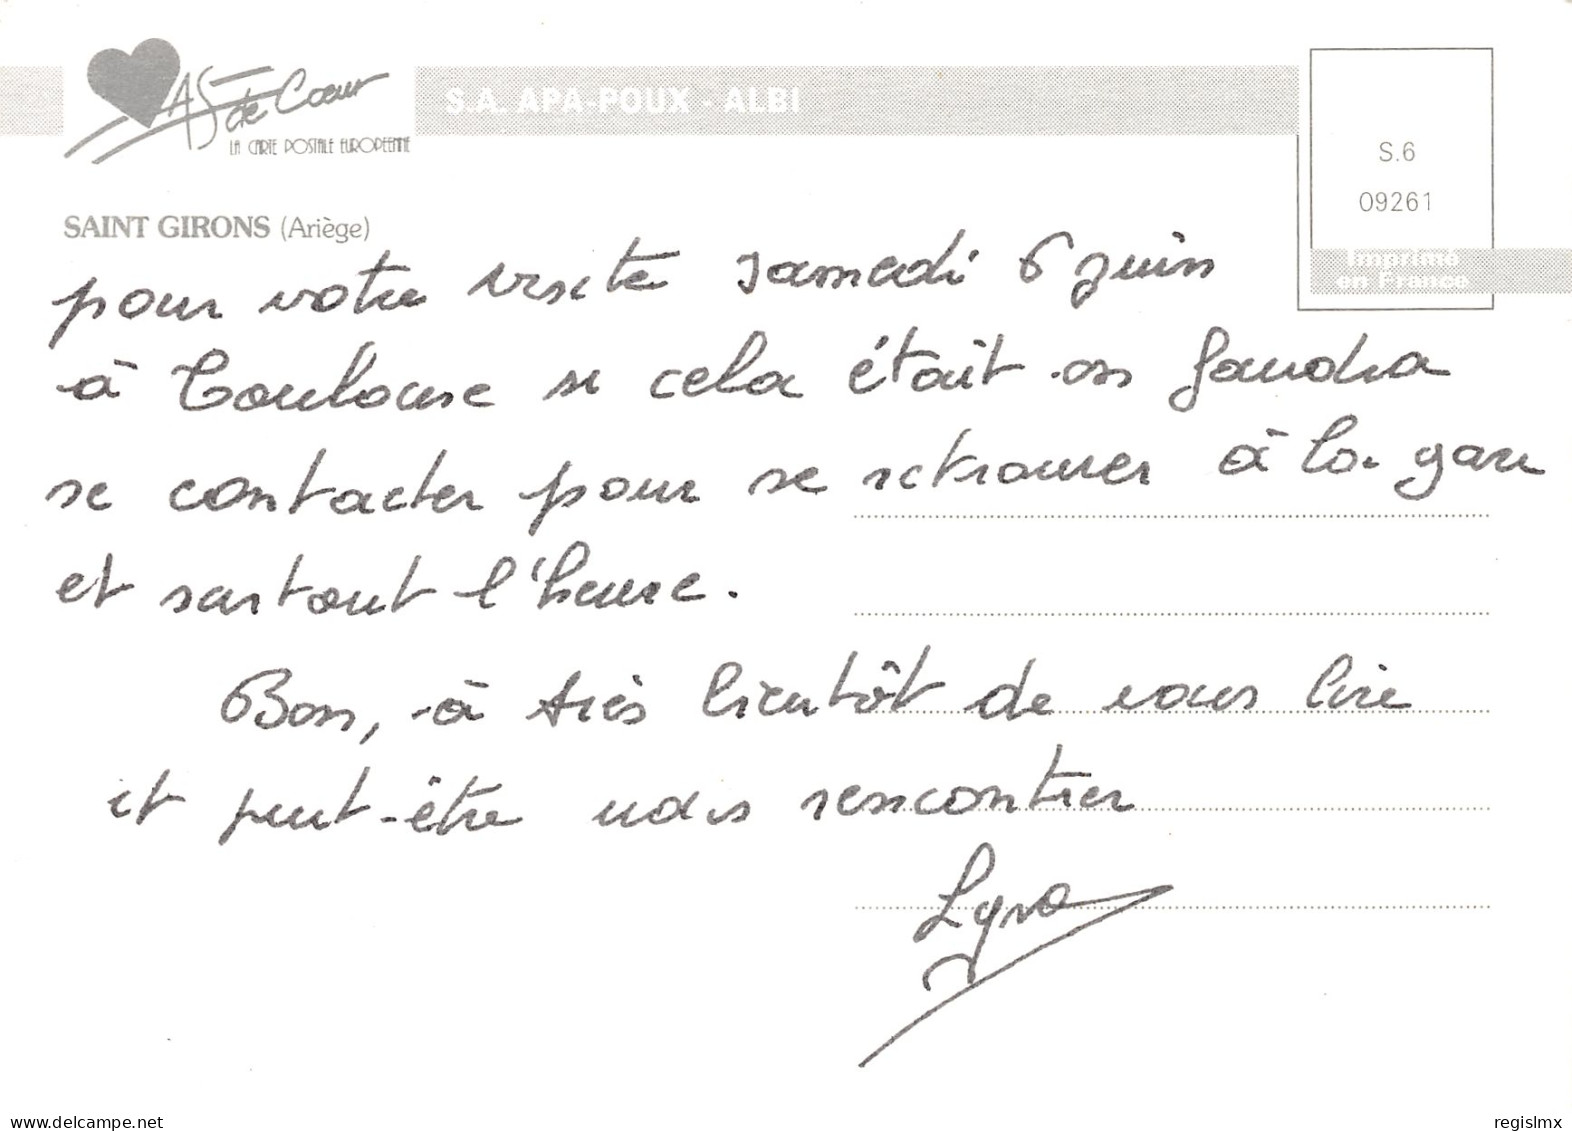 AS de Cœur
LA CARTE POSTALE EUROPEENNE
S.A. APA-POUX - ALBI
S.6
09261
Imprimé
en France
SAINT GIRONS (Ariège)
pour votre visite samedi 6 juin
à Toulouse si cela était on faudra
se contacter pour se retrouver à la gare
et surtout l'heure.
Bon, à très bientôt de vous lire
et peut-être nous rencontrer
Lyra
www.delcampe.net
regislmx